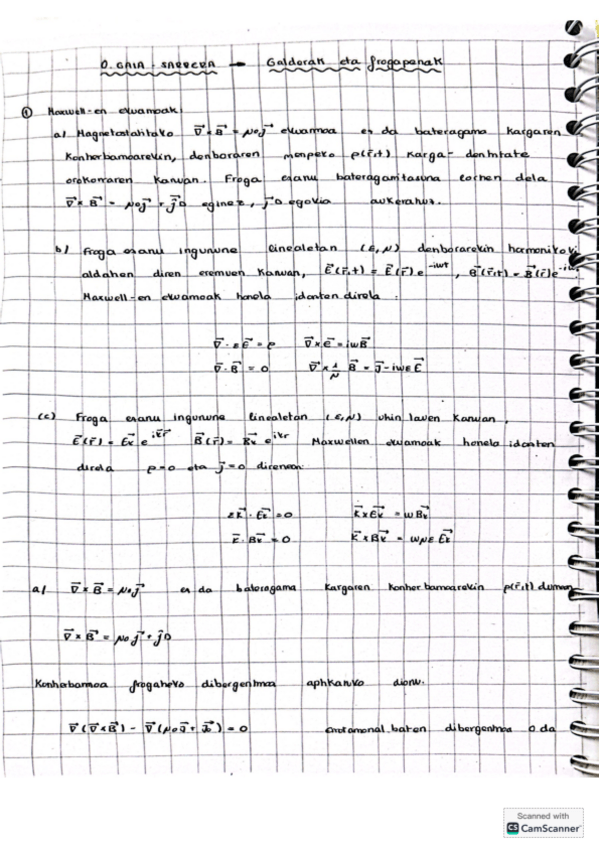 0. GAIA - SARRERA → Galderak eta frogapenak
① Maxwell-en ekuazioak
a) Magnetostatikako ∇⃗×B⃗ = μ₀j⃗ ekuazioa ez da bateragarria kargaren
kontserbazioarekin, denboraren menpeko ρ(r⃗,t) karga-dentsitate
orokorraren kasuan. Froga ezazu bateragarritasuna lortzen dela
∇⃗×B⃗ = μ₀j⃗ + j⃗D eginez, j⃗D egokia aukeratuz.
b) Froga ezazu ingurune linealetan (ε,μ) denborarekin harmonikoki
aldatzen diren eremuen kasuan, E⃗(r⃗,t) = E⃗(r⃗)e^-iωt, B⃗(r⃗,t) = B⃗(r⃗)e^-iω
Maxwell-en ekuazioak honela idazten direla:
∇⃗·εE⃗ = ρ ∇⃗×E⃗ = iωB⃗
∇⃗·B⃗ = 0 ∇⃗×1/μ B⃗ = J⃗ - iωεE⃗
(c) Froga ezazu ingurune linealetan (ε,μ) uhin lauen kasuan,
E⃗(r⃗) = E⃗k e^ik⃗r⃗ B⃗(r⃗) = B⃗k e^ikr Maxwellen ekuazioak honela idazten
direla ρ=0 eta j⃗=0 direnean.
εk⃗·E⃗k = 0 k⃗×E⃗k = ωB⃗k
k⃗·B⃗k = 0 k⃗×B⃗k = ωμεE⃗k
a) ∇⃗×B⃗ = μ₀j⃗ ez da bateragarria kargaren kontserbazioarekin ρ(r⃗,t) dunean
∇⃗×B⃗ = μ₀j⃗ + j⃗D
Kontserbazioa frogatzeko dibergentzia aplikatuko diogu.
∇⃗(∇⃗×B⃗) - ∇⃗(μ₀j⃗ + j⃗D) = 0 errotazional baten dibergentzia 0 da
Scanned with
CS CamScanner